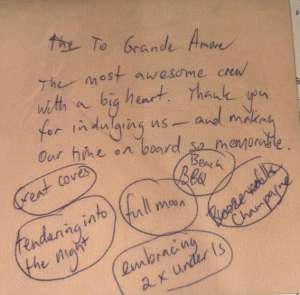 The To Grande Amore
The most awesome crew
with a big heart. Thank you
for indulging us – and making
our time on board so memorable.
Beach
BBQ
Great coves
full moon
Champagne
tendering into
the night
embracing
2 x under 15